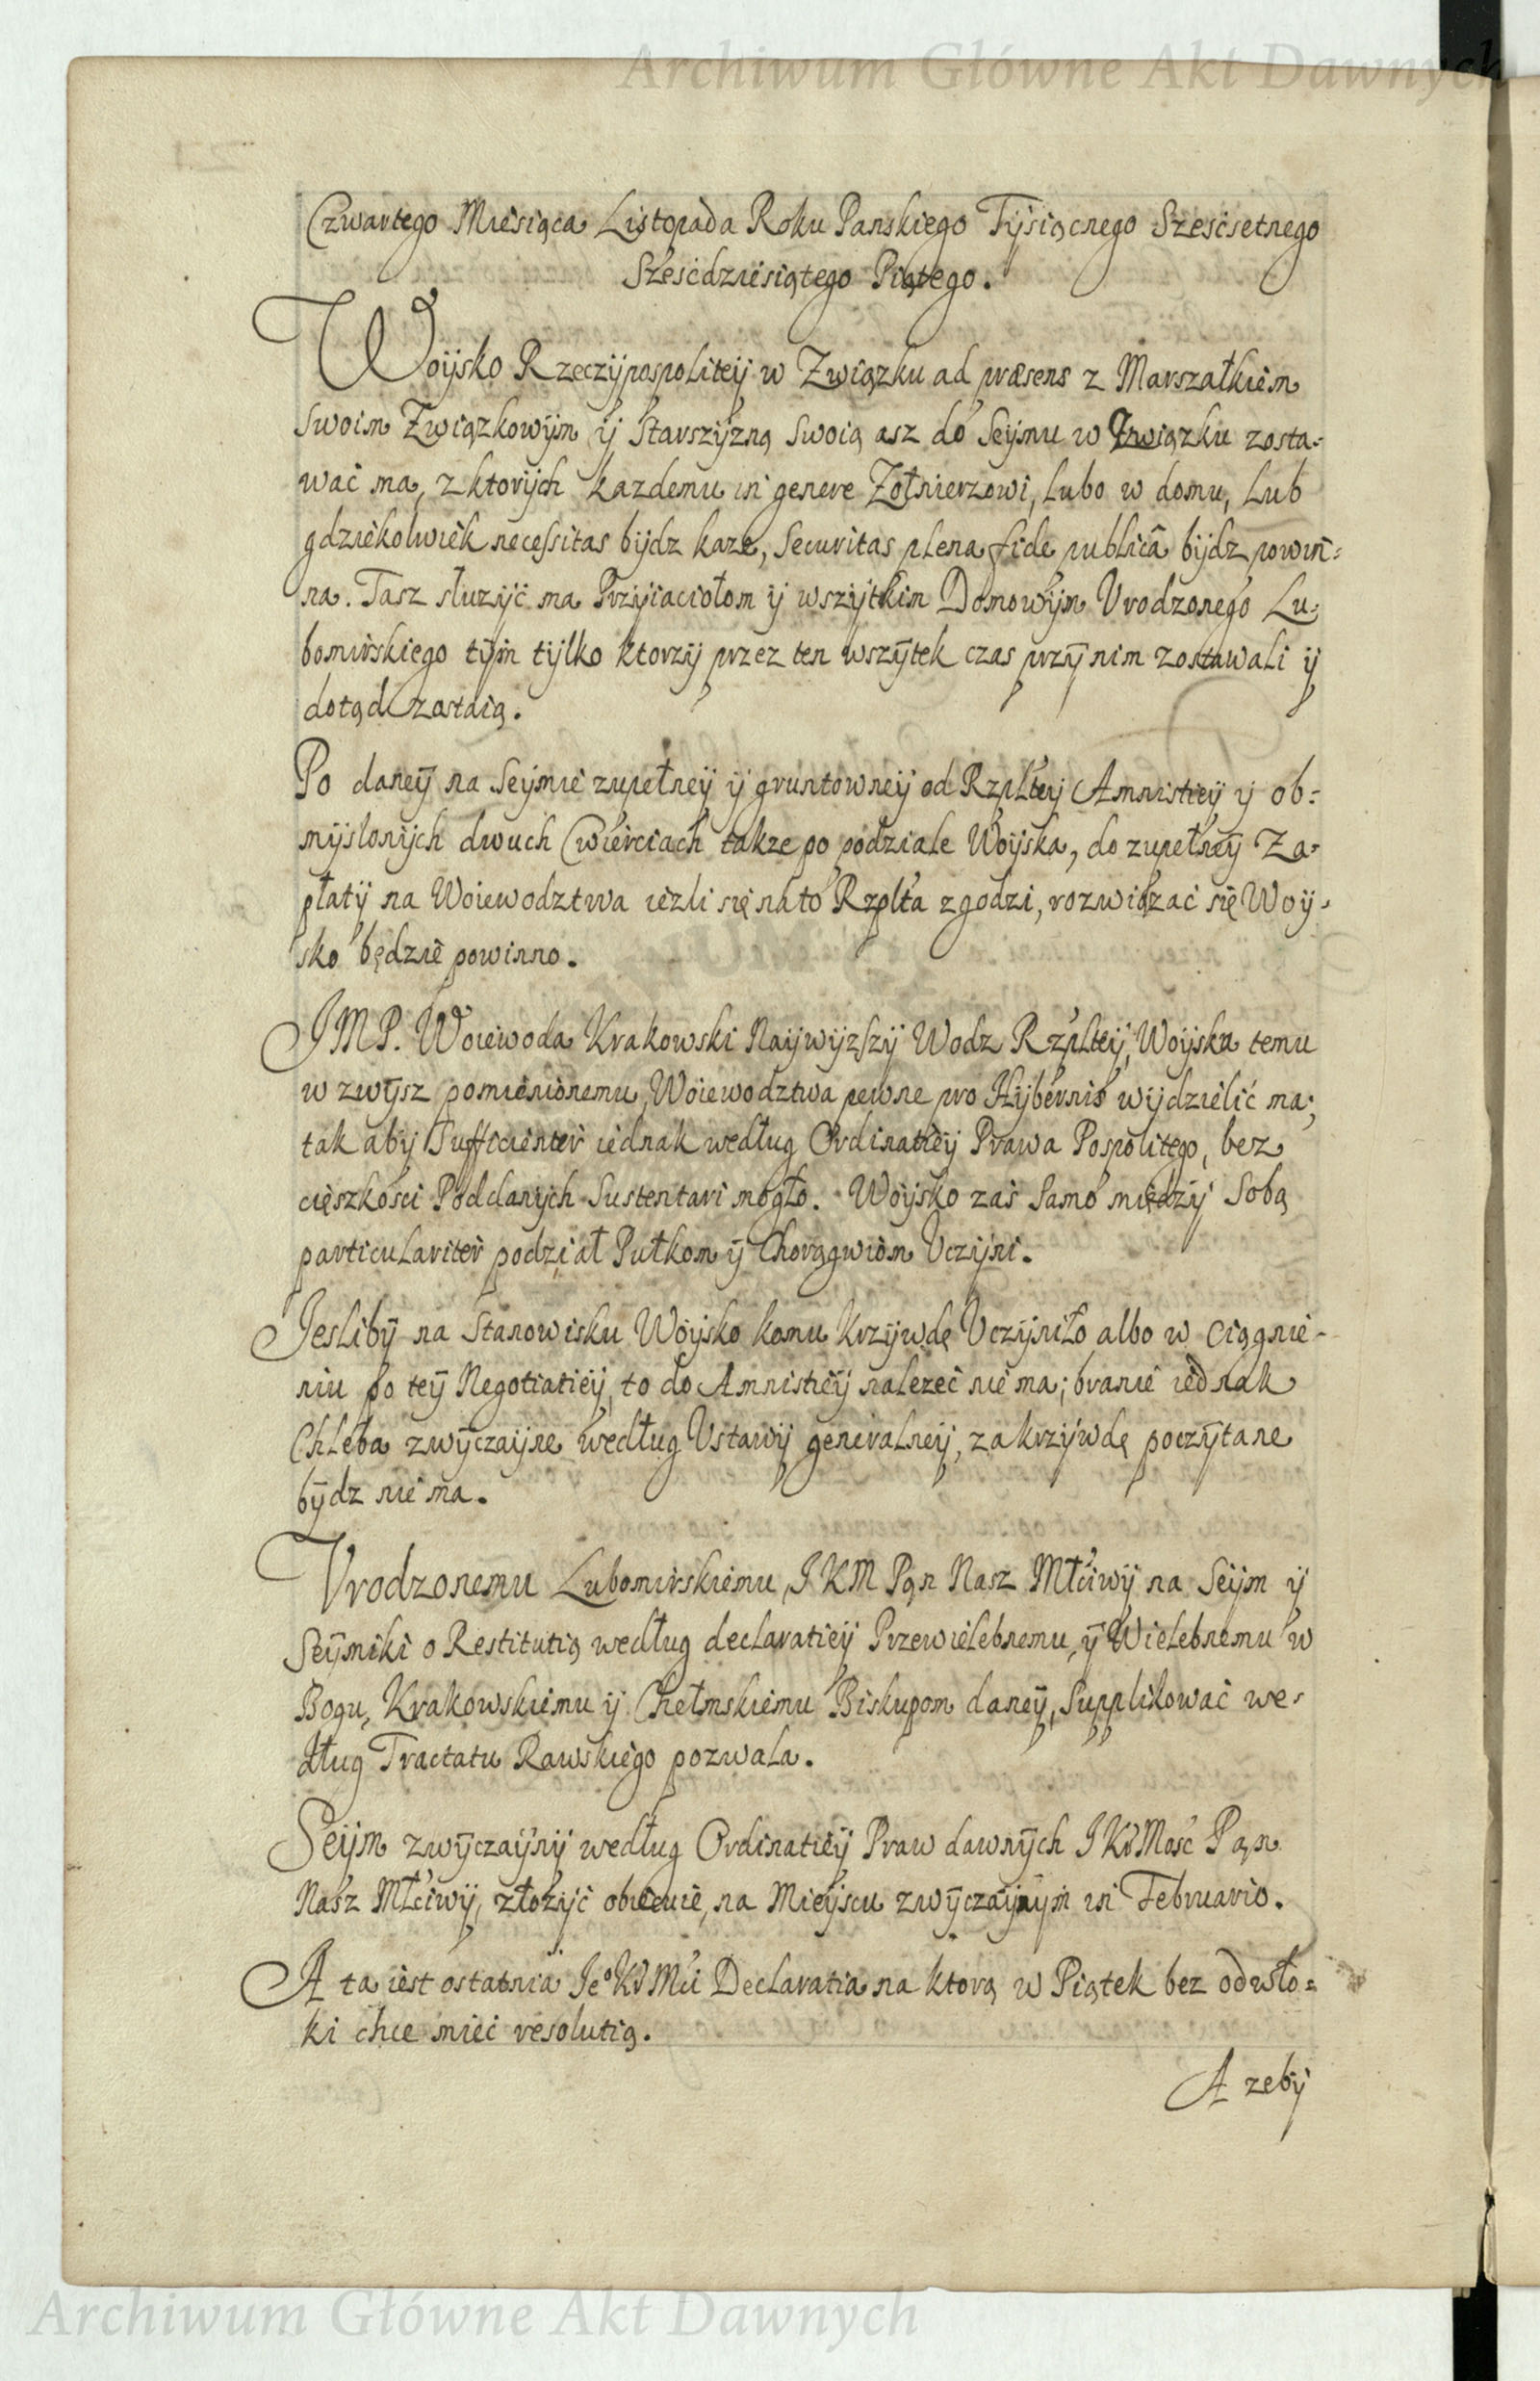 Archiwum Główne Akt Dawnych
Czwartego Miesiąca Listopada Roku Panskiego Tysiącnego Szescsetnego
Szescdziesiątego Piątego.
Woysko Rzeczypospolitey w Związku ad præsens z Marszałkiem
Swoim Związkowym y Starszyzną Swoią asz do Seymu w Związku zosta=
wać ma, z ktorych kazdemu in genere Zołnierzowi, Lubo w domu, Lub
gdziekolwiek necessitas bydz kaze, Securitas plena fide publicâ bydz powin=
na. Tasz słuzyć ma Przyiaciołom y wszytkim Domowym Vrodzonego Lu=
bomirskiego tym tylko ktorzy przez ten wszytek czas przy nim zostawali y
dotąd zostaią.
Po daney na Seymie zupełney y gruntowney od Rzpltey Amnistiey y ob=
myslonych dwuch Cwierciach takze po podziale Woyska, do zupełney Za=
płaty na Woiewodztwa iezli się na to Rzplta zgodzi, rozwiązać się Woy=
sko będzie powinno.
JMP. Woiewoda Krakowski Naywyzszy Wodz Rzpltey, Woysku temu
w zwysz pomienionemu, Woiewodztwa pewne pro Hybernis wydzielić ma;
tak aby Sufficienter iednak według Ordinatiey Prawa Pospolitego, bez
cięszkosci Poddanych Sustentari mogło. Woysko zaś Samo między Sobą
particulariter podział Pułkom y Chorągwiom Vczyni.
Jesliby na Stanowisku Woysko komu Krzywdę Vczyniło albo w ciągnie-
niu po tey Negotiatiey, to do Amnistiey nalezeć nie ma; branie iednak
Chleba zwyczayne według Vstawy generalney, za krzywdę poczytane
bydz nie ma.
Vrodzonemu Lubomirskiemu JKM Pan Nasz Mściwy na Seym y
Seymiki o Restitutią według declaratiey Przewielebnemu, y Wielebnemu w
Bogu, Krakowskiemu y Chełmskiemu Biskupom daney, Supplikować we=
dług Tractatu Rawskiego pozwala.
Seym zwyczayny według Ordinatiey Praw dawnych JKMość Pan
Nasz Młciwy, złozyć obiecuie, na Mieyscu zwyczaynym in Februario.
A ta iest ostatnia Jeº KMci Declaratia na ktorą w Piątek bez odwło=
ki chce mieć resolutią.
A zeby
Archiwum Główne Akt Dawnych